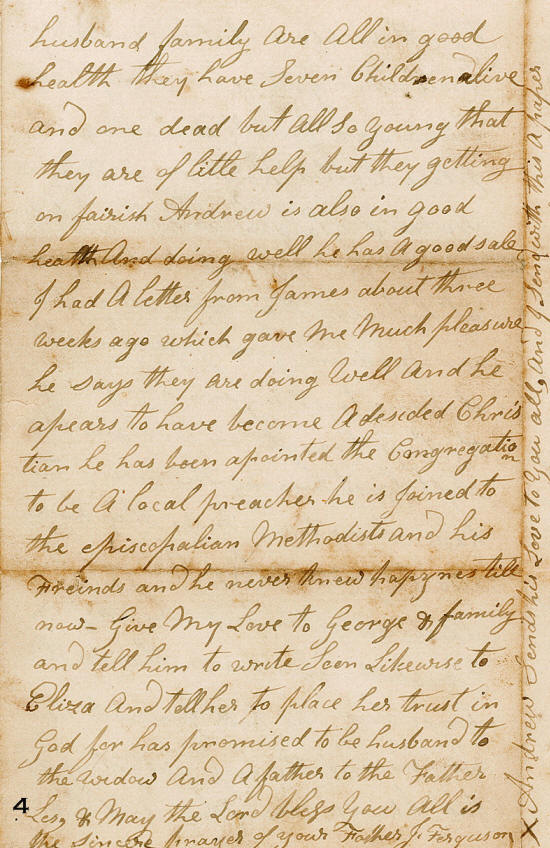 husband family are All in good
health they have Seven Children alive
and one dead but All So young that
they are of little help but they getting
on fairish Andrew is also in good
health And doing well he has A good sale
I had A letter from James about three
weeks ago which gave Me Much pleasure
he says they are doing Well And he
apears to have become A desided Chris
tian he has been apointed the Congregation
to be A local preacher he is joined to
the episcopalian Methodists and his
Freinds and he never knew hapynes till
now - Give My Love to George & family
and tell him to write Soon Likewise to
Eliza And tell her to place her trust in
God for has promised to be husband to
the widow And A father to the Father
Les, & May the Lord bless You All is
the sincere prayer of your Father J. Ferguson
4
X Andrew Sends his Love to You all, And I Send with this A paper